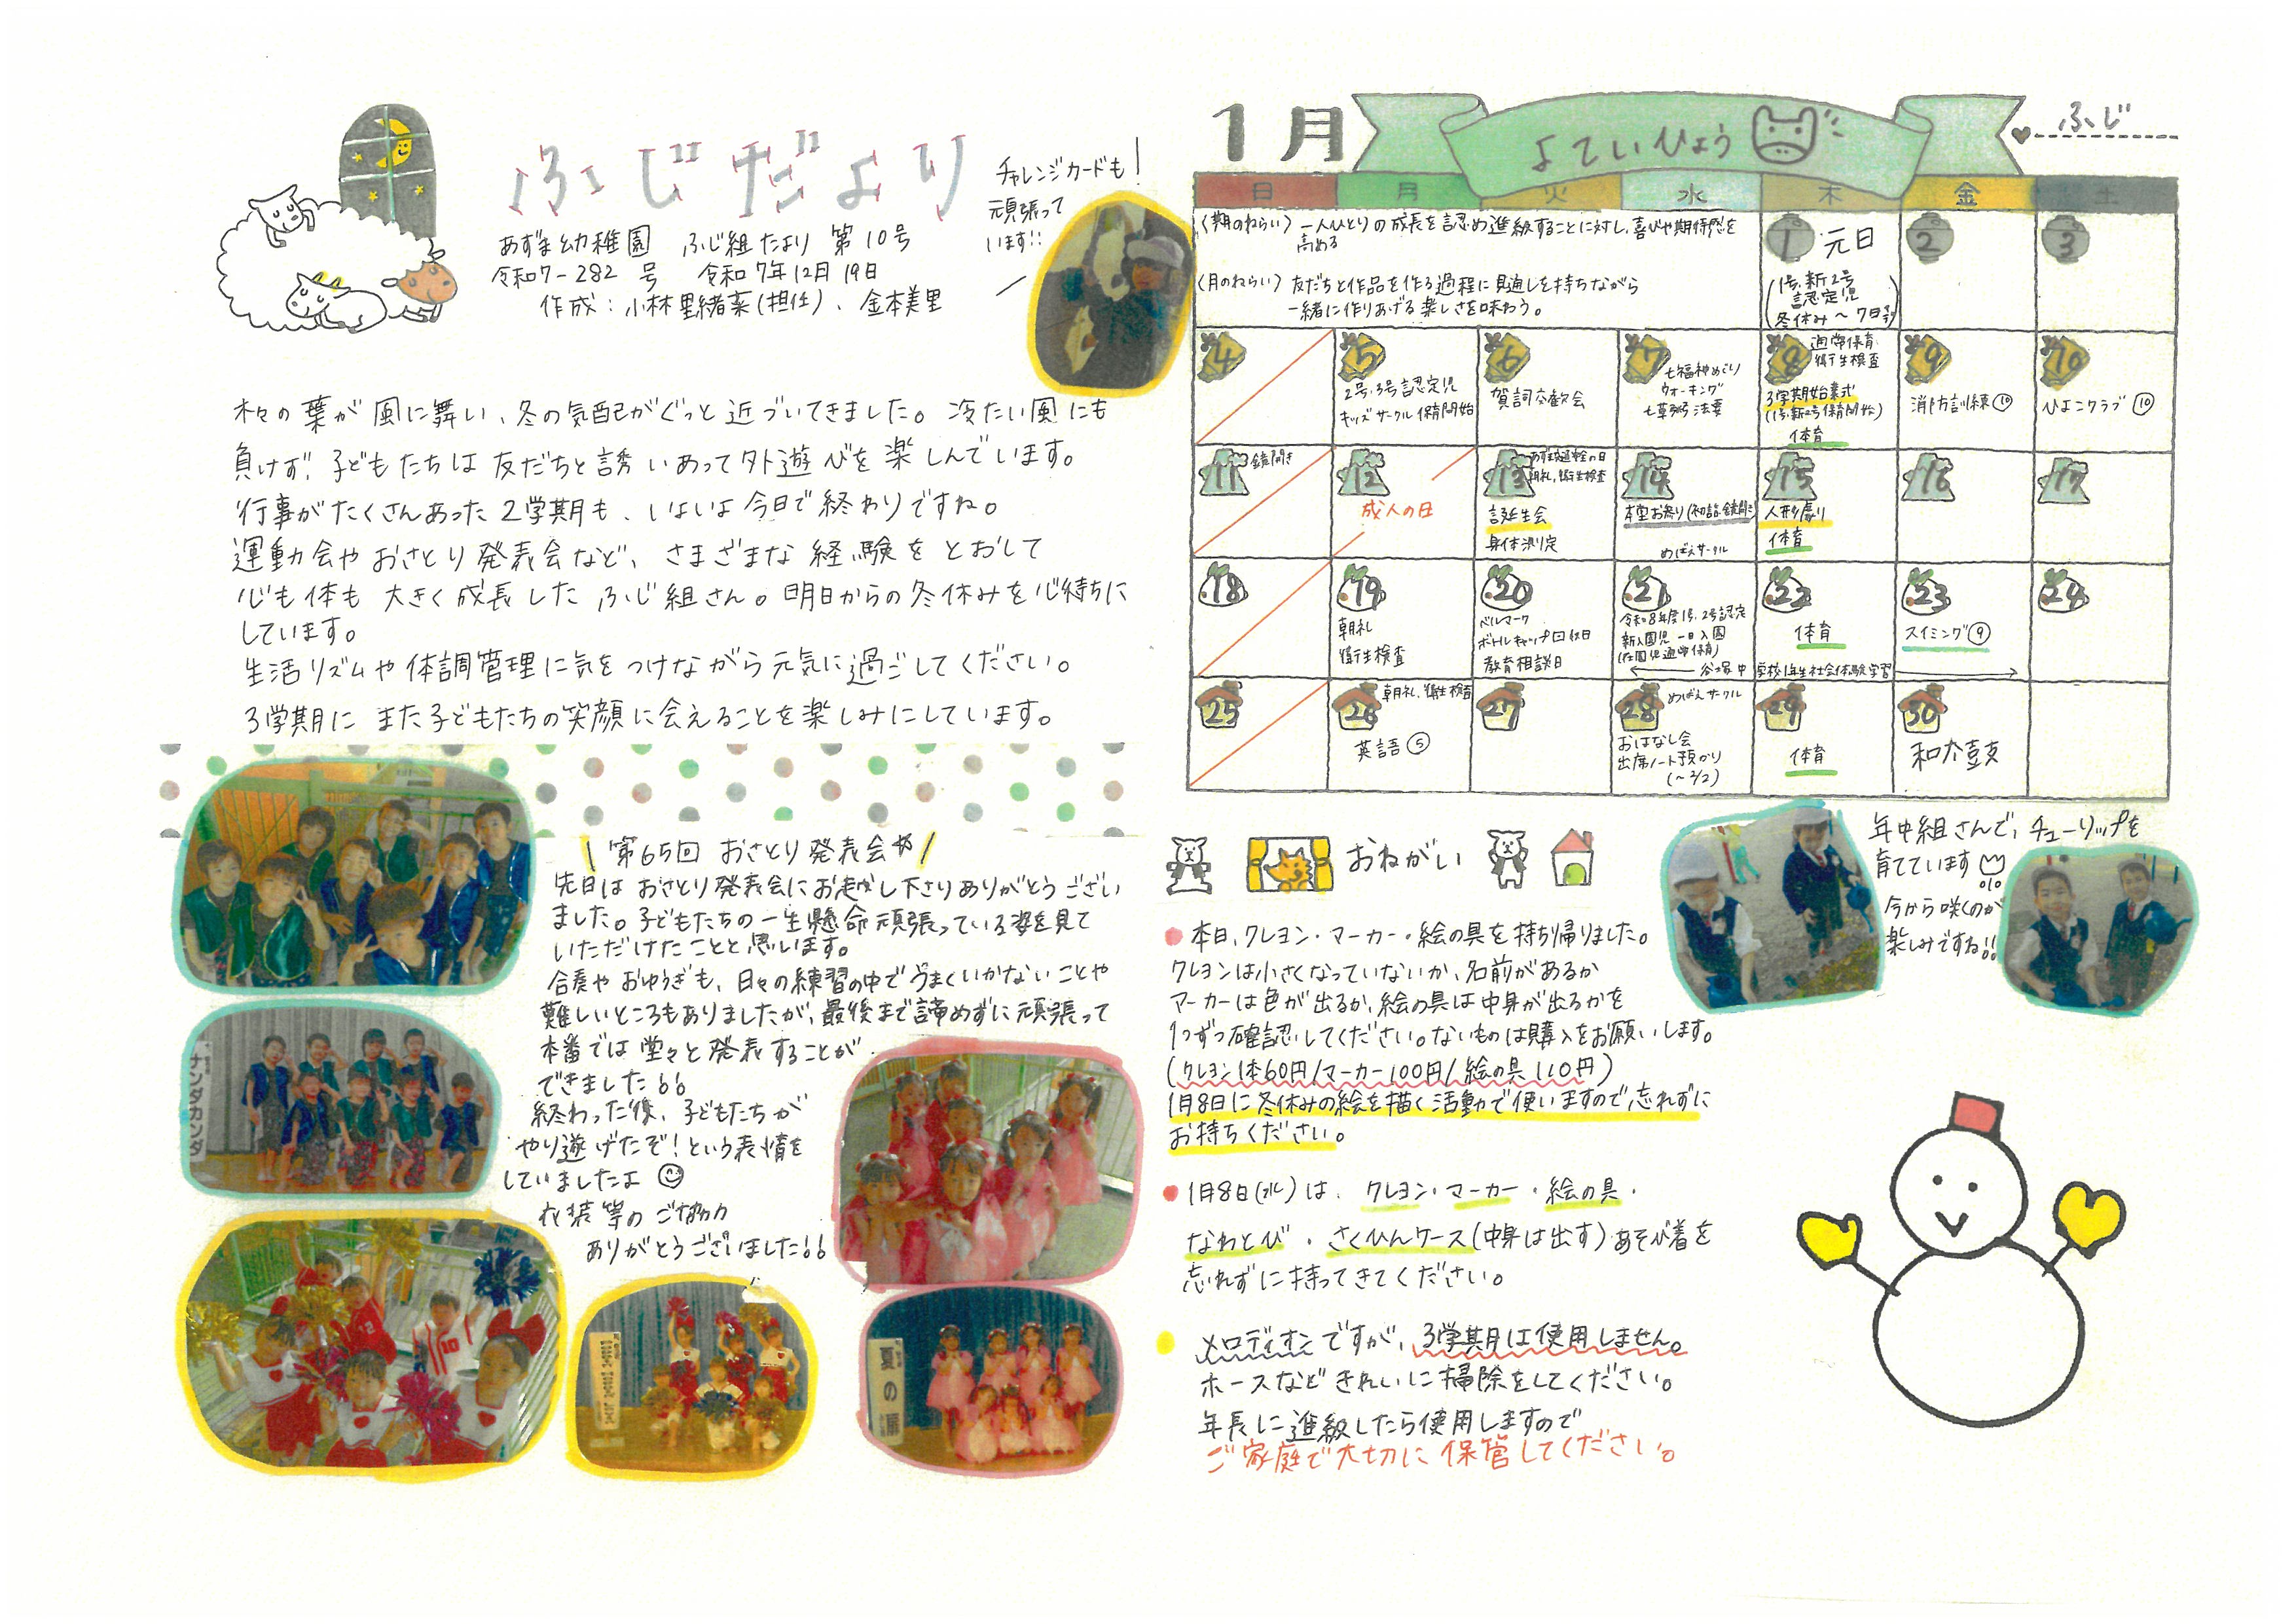 ふじだより
チャレンジカードも!
頑張って
います!!
あずま幼稚園 ふじ組だより 第10号
令和7-282号 令和7年12月19日
作成:小林里緒菜(担任)、金本美里
木々の葉が風に舞い、冬の気配がぐっと近づいてきました。冷たい風にも
負けず、子どもたちは友だちと誘いあって外遊びを楽しんでいます。
行事がたくさんあった2学期も、いよいよ今日で終わりですね。
運動会やおさとり発表会など、さまざまな経験をとおして
心も体も大きく成長したふじ組さん。明日からの冬休みを心待ちに
しています。
生活リズムや体調管理に気をつけながら元気に過ごしてください。
3学期にまた子どもたちの笑顔に会えることを楽しみにしています。
第65回 おさとり発表会
先日はおさとり発表会にお越し下さりありがとうござい
ました。子どもたちの一生懸命頑張っている姿を見て
いただけたことと思います。
合奏やおゆうぎも、日々の練習の中でうまくいかないことや
難しいところもありましたが、最後まで諦めずに頑張って
本番では堂々と発表することが
できました!!
終わった後、子どもたちが
やり遂げたぞ!という表情を
していましたよ
衣装等のご協力
ありがとうございました!!
ナンダカンダ
夏の扉
1月 よていひょう ふじ
日 月 火 水 木 金 土
(期のねらい) 一人ひとりの成長を認め進級することに対し、喜びや期待感を
高める
(月のねらい) 友だちと作品を作る過程に見通しを持ちながら
一緒に作りあげる楽しさを味わう。
1 元日
(1号、新2号
認定児
冬休み〜7日まで)
2
3
4
5
2号、3号認定児
キッズサークル保育開始
6
賀詞交歓会
7
七福神めぐり
ウォーキング
七草粥法要
8 通常保育
衛生検査
3学期始業式
(1号、新2号保育開始)
体育
9
消防訓練⑩
10
ひよこクラブ⑩
11 鏡開き
12
成人の日
13 あずま交通安全の日
朝礼、衛生検査
誕生会
身体測定
14
本堂お参り(初詣、鏡開き)
めばえサークル
15
人形劇
体育
16
17
18
19
朝礼
衛生検査
20
ベルマーク
ボトルキャップ回収日
教育相談日
21
令和8年度1号、2号認定
新入園児 一日入園
(在園児通常保育)
谷塚中学校1年生社会体験学習
22
体育
23
スイミング⑨
24
25
26 朝礼、衛生検査
英語⑤
27
28 めばえサークル
おはなし会
出席ノート預かり
(〜2/2)
29
体育
30
和太鼓
おねがい
年中組さんで、チューリップを
育てています
今から咲くのが
楽しみですね!!
本日、クレヨン・マーカー・絵の具を持ち帰りました。
クレヨンは小さくなっていないか、名前があるか
マーカーは色が出るか、絵の具は中身が出るかを
1つずつ確認してください。ないものは購入をお願いします。
(クレヨン1本60円/マーカー100円/絵の具110円)
1月8日に冬休みの絵を描く活動で使いますので忘れずに
お持ちください。
1月8日(水)は、クレヨン・マーカー・絵の具・
なわとび・さくひんケース(中身は出す)あそび着を
忘れずに持ってきてください。
メロディオンですが、3学期は使用しません。
ホースなどきれいに掃除をしてください。
年長に進級したら使用しますので
ご家庭で大切に保管してください。